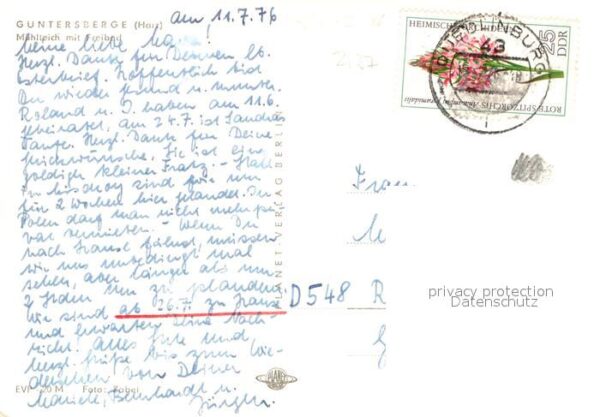 GUNTERSBERGE (Harz)
Mühlteich mit Freibad
am 11.7.76
Meine liebe
Herzl. Dank für Deinen lb.
Osterbrief. Hoffentlich bist
Du wieder gesund u. munter.
Roland u. haben am 11.6.
geheiratet, am 24.7. ist Sandras
Taufe. Herzl. Dank für Deine
Glückwünsche. Sie ist ein
goldig kleiner Fratz. - Statt
in sind wir nun
für 2 Wochen hier gelandet. In
Polen darf man nicht mehr pri-
vat vermieten. - Wenn Du
nach fährst, müssen
wir uns unbedingt mal
sehen, aber länger als nur
2 Stden zu plaudern.
Wir sind ab 26.7. zu Hause
und erwarten Deine Nach-
richt. Alles Gute und
herzl. Grüße bis zum Wie-
dersehen von Deiner
u.
Jürgen.
PLANET-VERLAG BERLIN
EVP -20 M Foto:
HEIMISCHE
25
DDR
ROTE SPITZORCHIS Anacamptis pyramidalis
QUEDLINBURG
43
Frau
M
D 548 R
G
privacy protection
Datenschutz